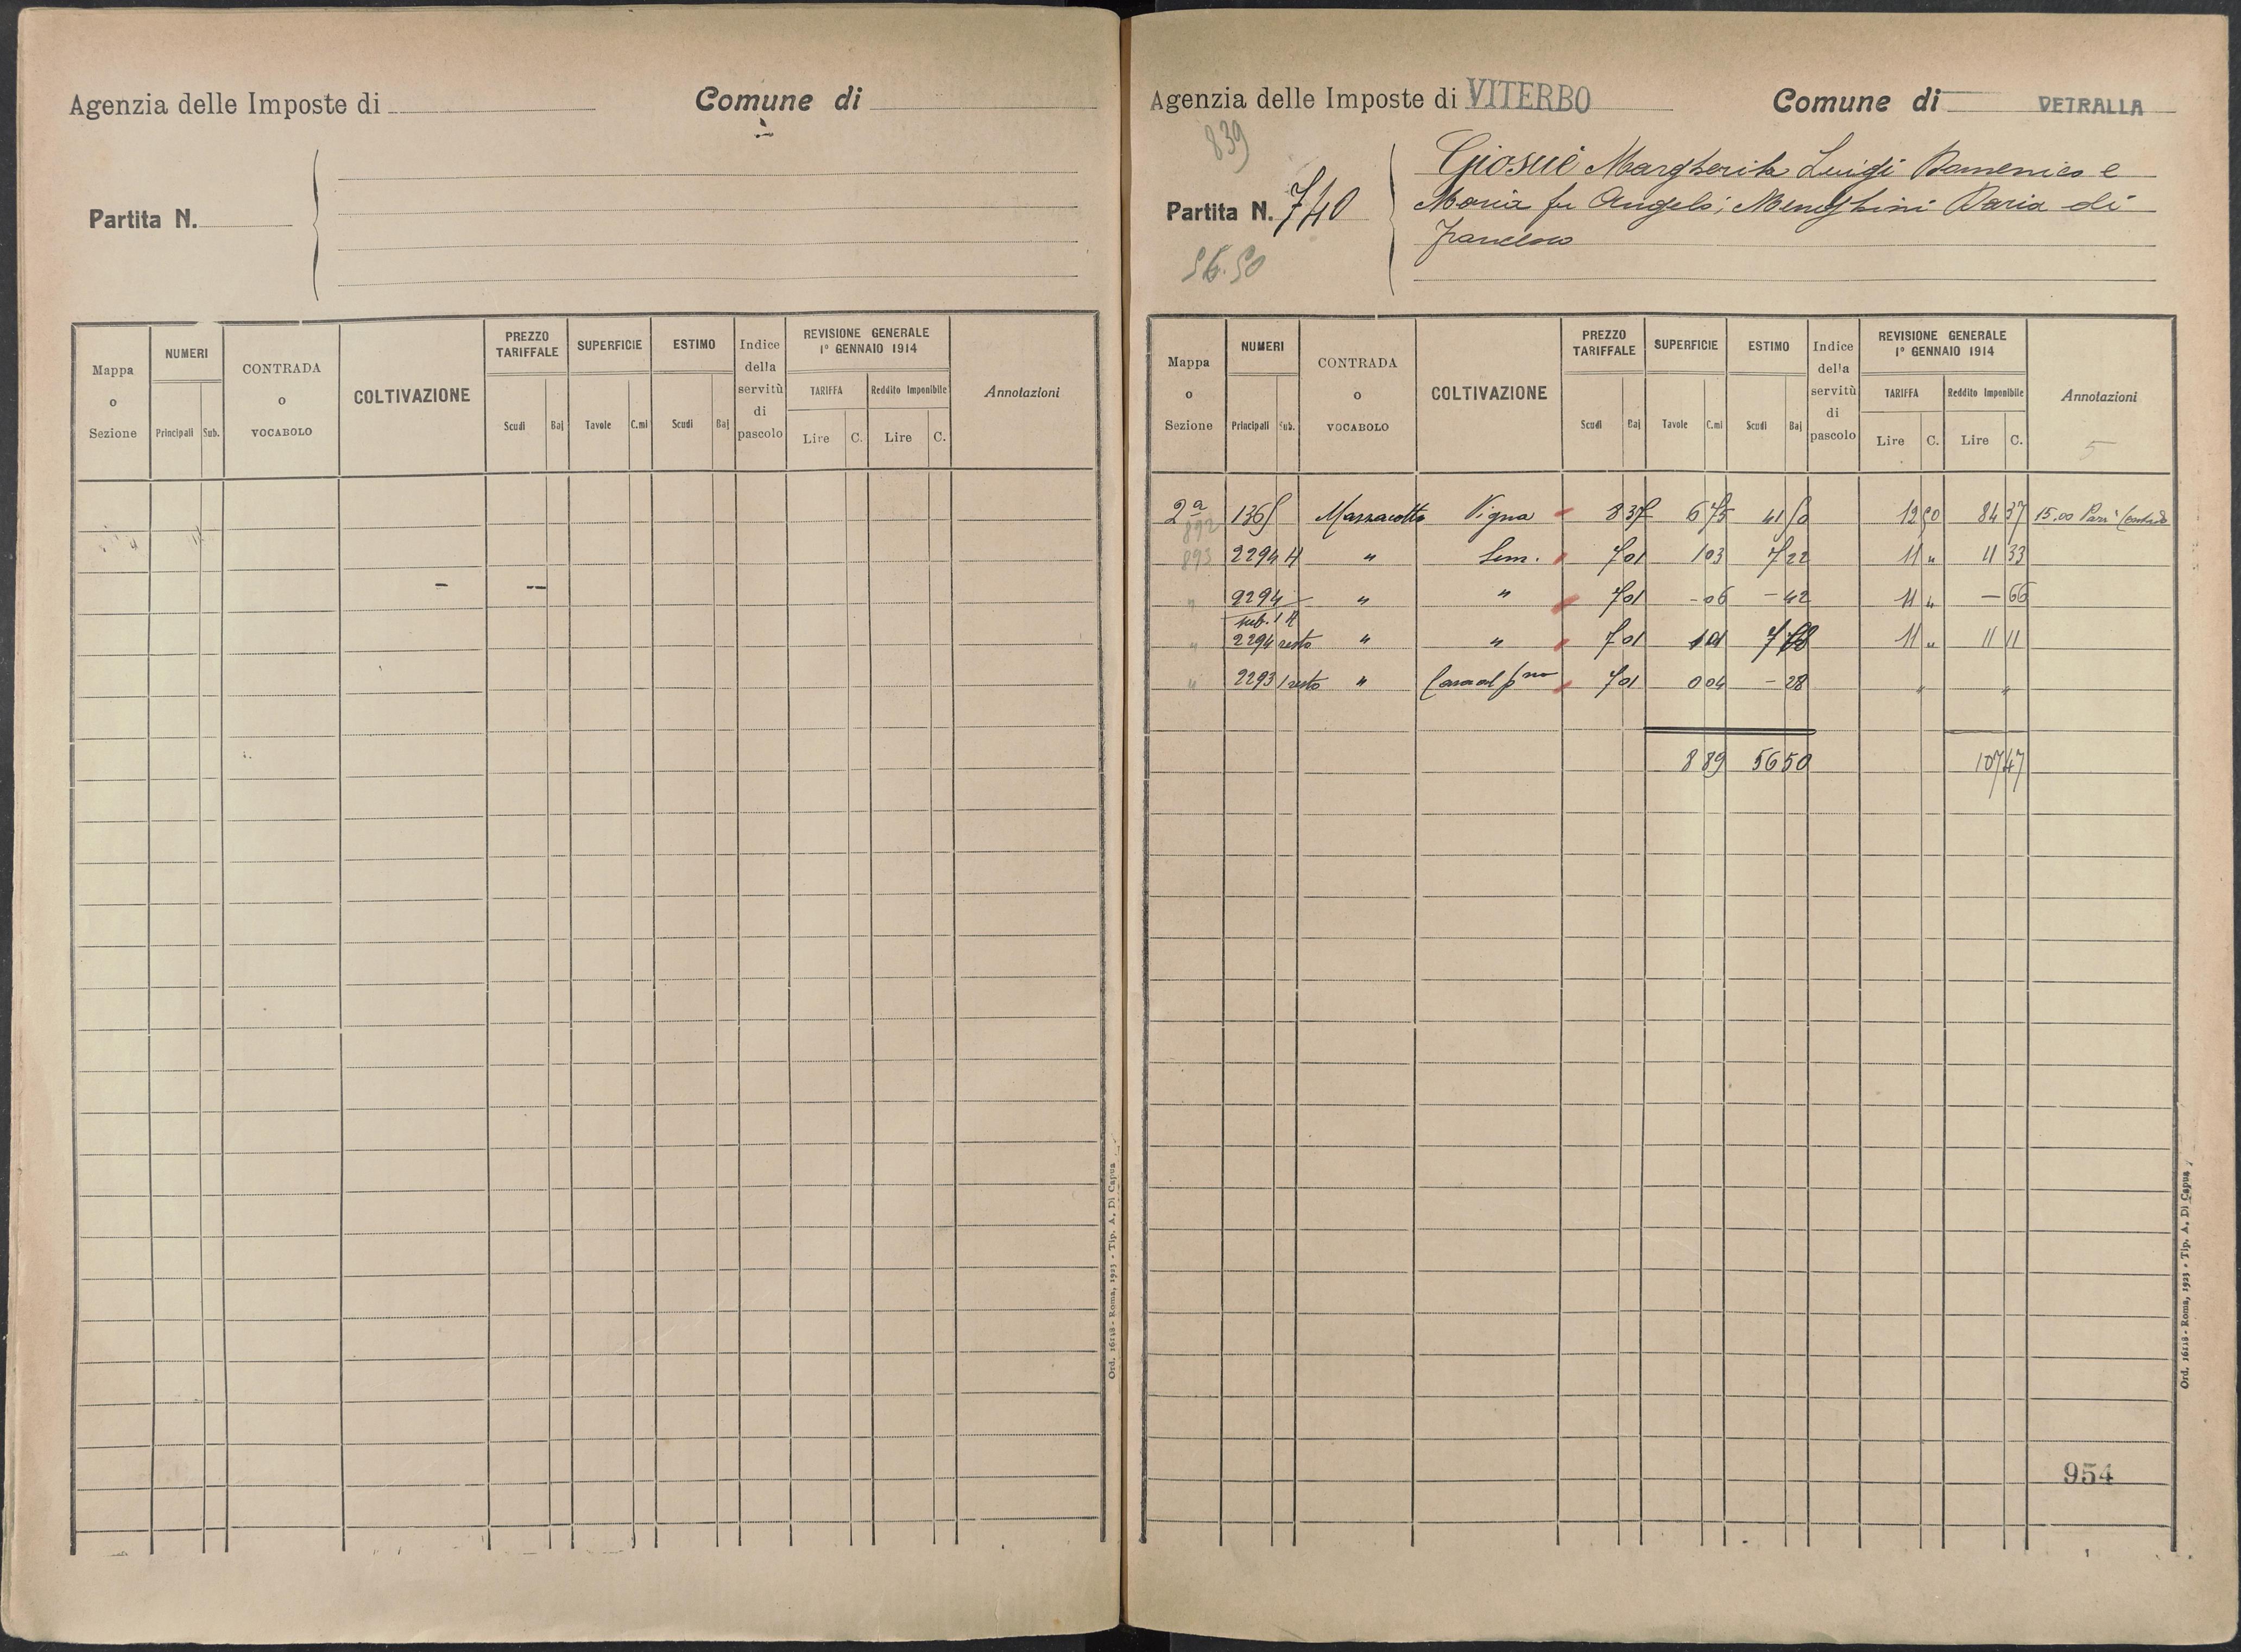 Agenzia delle Imposte di
Comune di
Partita N.
Mappa o Sezione
NUMERI
Principali Sub.
CONTRADA o VOCABOLO
COLTIVAZIONE
PREZZO TARIFFALE
Scudi Baj
SUPERFICIE
Tavole C.mi
ESTIMO
Scudi Baj
Indice della servitù di pascolo
REVISIONE GENERALE
1° GENNAIO 1914
TARIFFA Reddito Imponibile
Lire C. Lire C.
Annotazioni
Ord. 16118 - Roma, 1923 - Tip. A. Di Capua
Agenzia delle Imposte di VITERBO
Comune di VETRALLA
839
Partita N. 740
56.50
Giosuè Margherita Luigi Domenico e
Maria fu Angelo; Menghini Daria di
Francesco
Mappa o Sezione
NUMERI
Principali Sub.
CONTRADA o VOCABOLO
COLTIVAZIONE
PREZZO TARIFFALE
Scudi Baj
SUPERFICIE
Tavole C.mi
ESTIMO
Scudi Baj
Indice della servitù di pascolo
REVISIONE GENERALE
1° GENNAIO 1914
TARIFFA Reddito Imponibile
Lire C. Lire C.
Annotazioni
5
2ª 1365 Massacotto Vigna 8 37 6 75 41 50 12 50 84 37 15.00
892
893 2294 4 " Sem. 7 01 1 03 7 22 11 " 11 33
" 2294 " " 7 01 - 06 - 42 11 " - 66
sub. 1
" 2294 resto " " 7 01 1 01 7 08 11 " 11 11
" 2293 1 resto " 7 01 0 04 - 28 " "
8 89 56 50 107 47
954
Ord. 16118 - Roma, 1923 - Tip. A. Di Capua